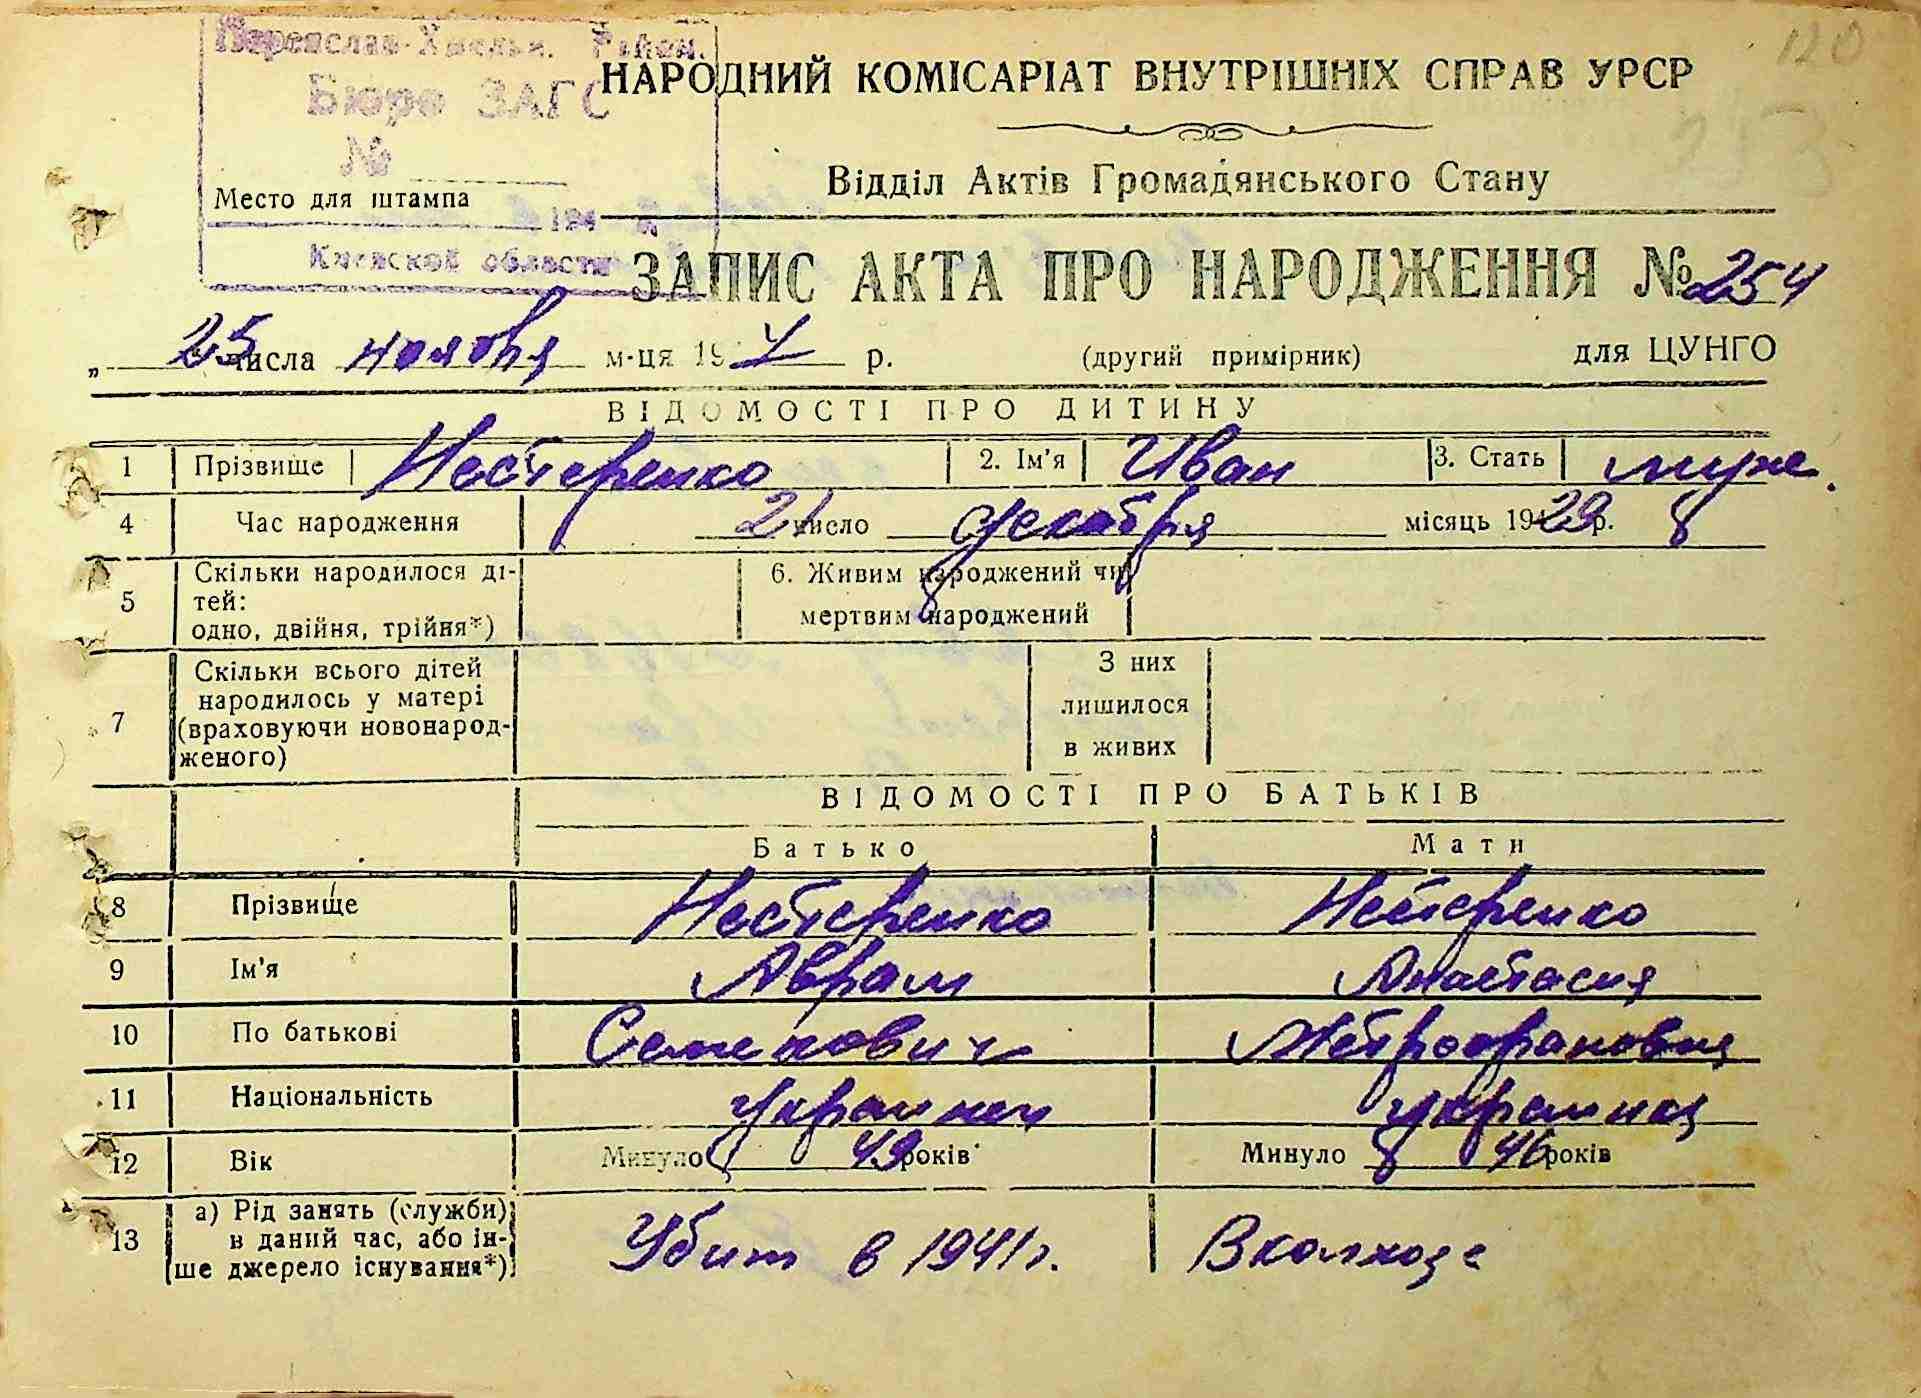 120
Переяслав-Хмельн. Район.
Бюро ЗАГС
№
194
Киевской области
Место для штампа
НАРОДНИЙ КОМІСАРІАТ ВНУТРІШНІХ СПРАВ УРСР
Відділ Актів Громадянського Стану
ЗАПИС АКТА ПРО НАРОДЖЕННЯ № 254
„ 25 числа ноября м-ця 19 р. (другий примірник) для ЦУНГО
ВІДОМОСТІ ПРО ДИТИНУ
1 Прізвище Нестеренко 2. Ім'я Иван 3. Стать муж.
4 Час народження 21 число декабря місяць 1929 р.
5 Скільки народилося ді-
тей:
одно, двійня, трійня*)
6. Живим народжений чи
мертвим народжений
7 Скільки всього дітей
народилось у матері
(враховуючи новонарод-
женого)
З них
лишилося
в живих
ВІДОМОСТІ ПРО БАТЬКІВ
Батько Мати
8 Прізвище Нестеренко Нестеренко
9 Ім'я Аврам Анастасия
10 По батькові Семенович Митрофановна
11 Національність украинец украинка
12 Вік Минуло 49 років Минуло 46 років
13 а) Рід занять (служби)
в даний час, або ін-
ше джерело існування*)
Убит в 1941 г. В колхозе